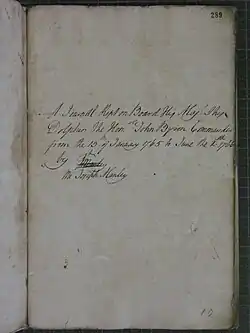 289
A Journall Kept on Board His Majs Ship
Dolphin The Honble John Byron Commander
from the 13th of January 1765 to June the 1766
by
Mr Joseph Harley